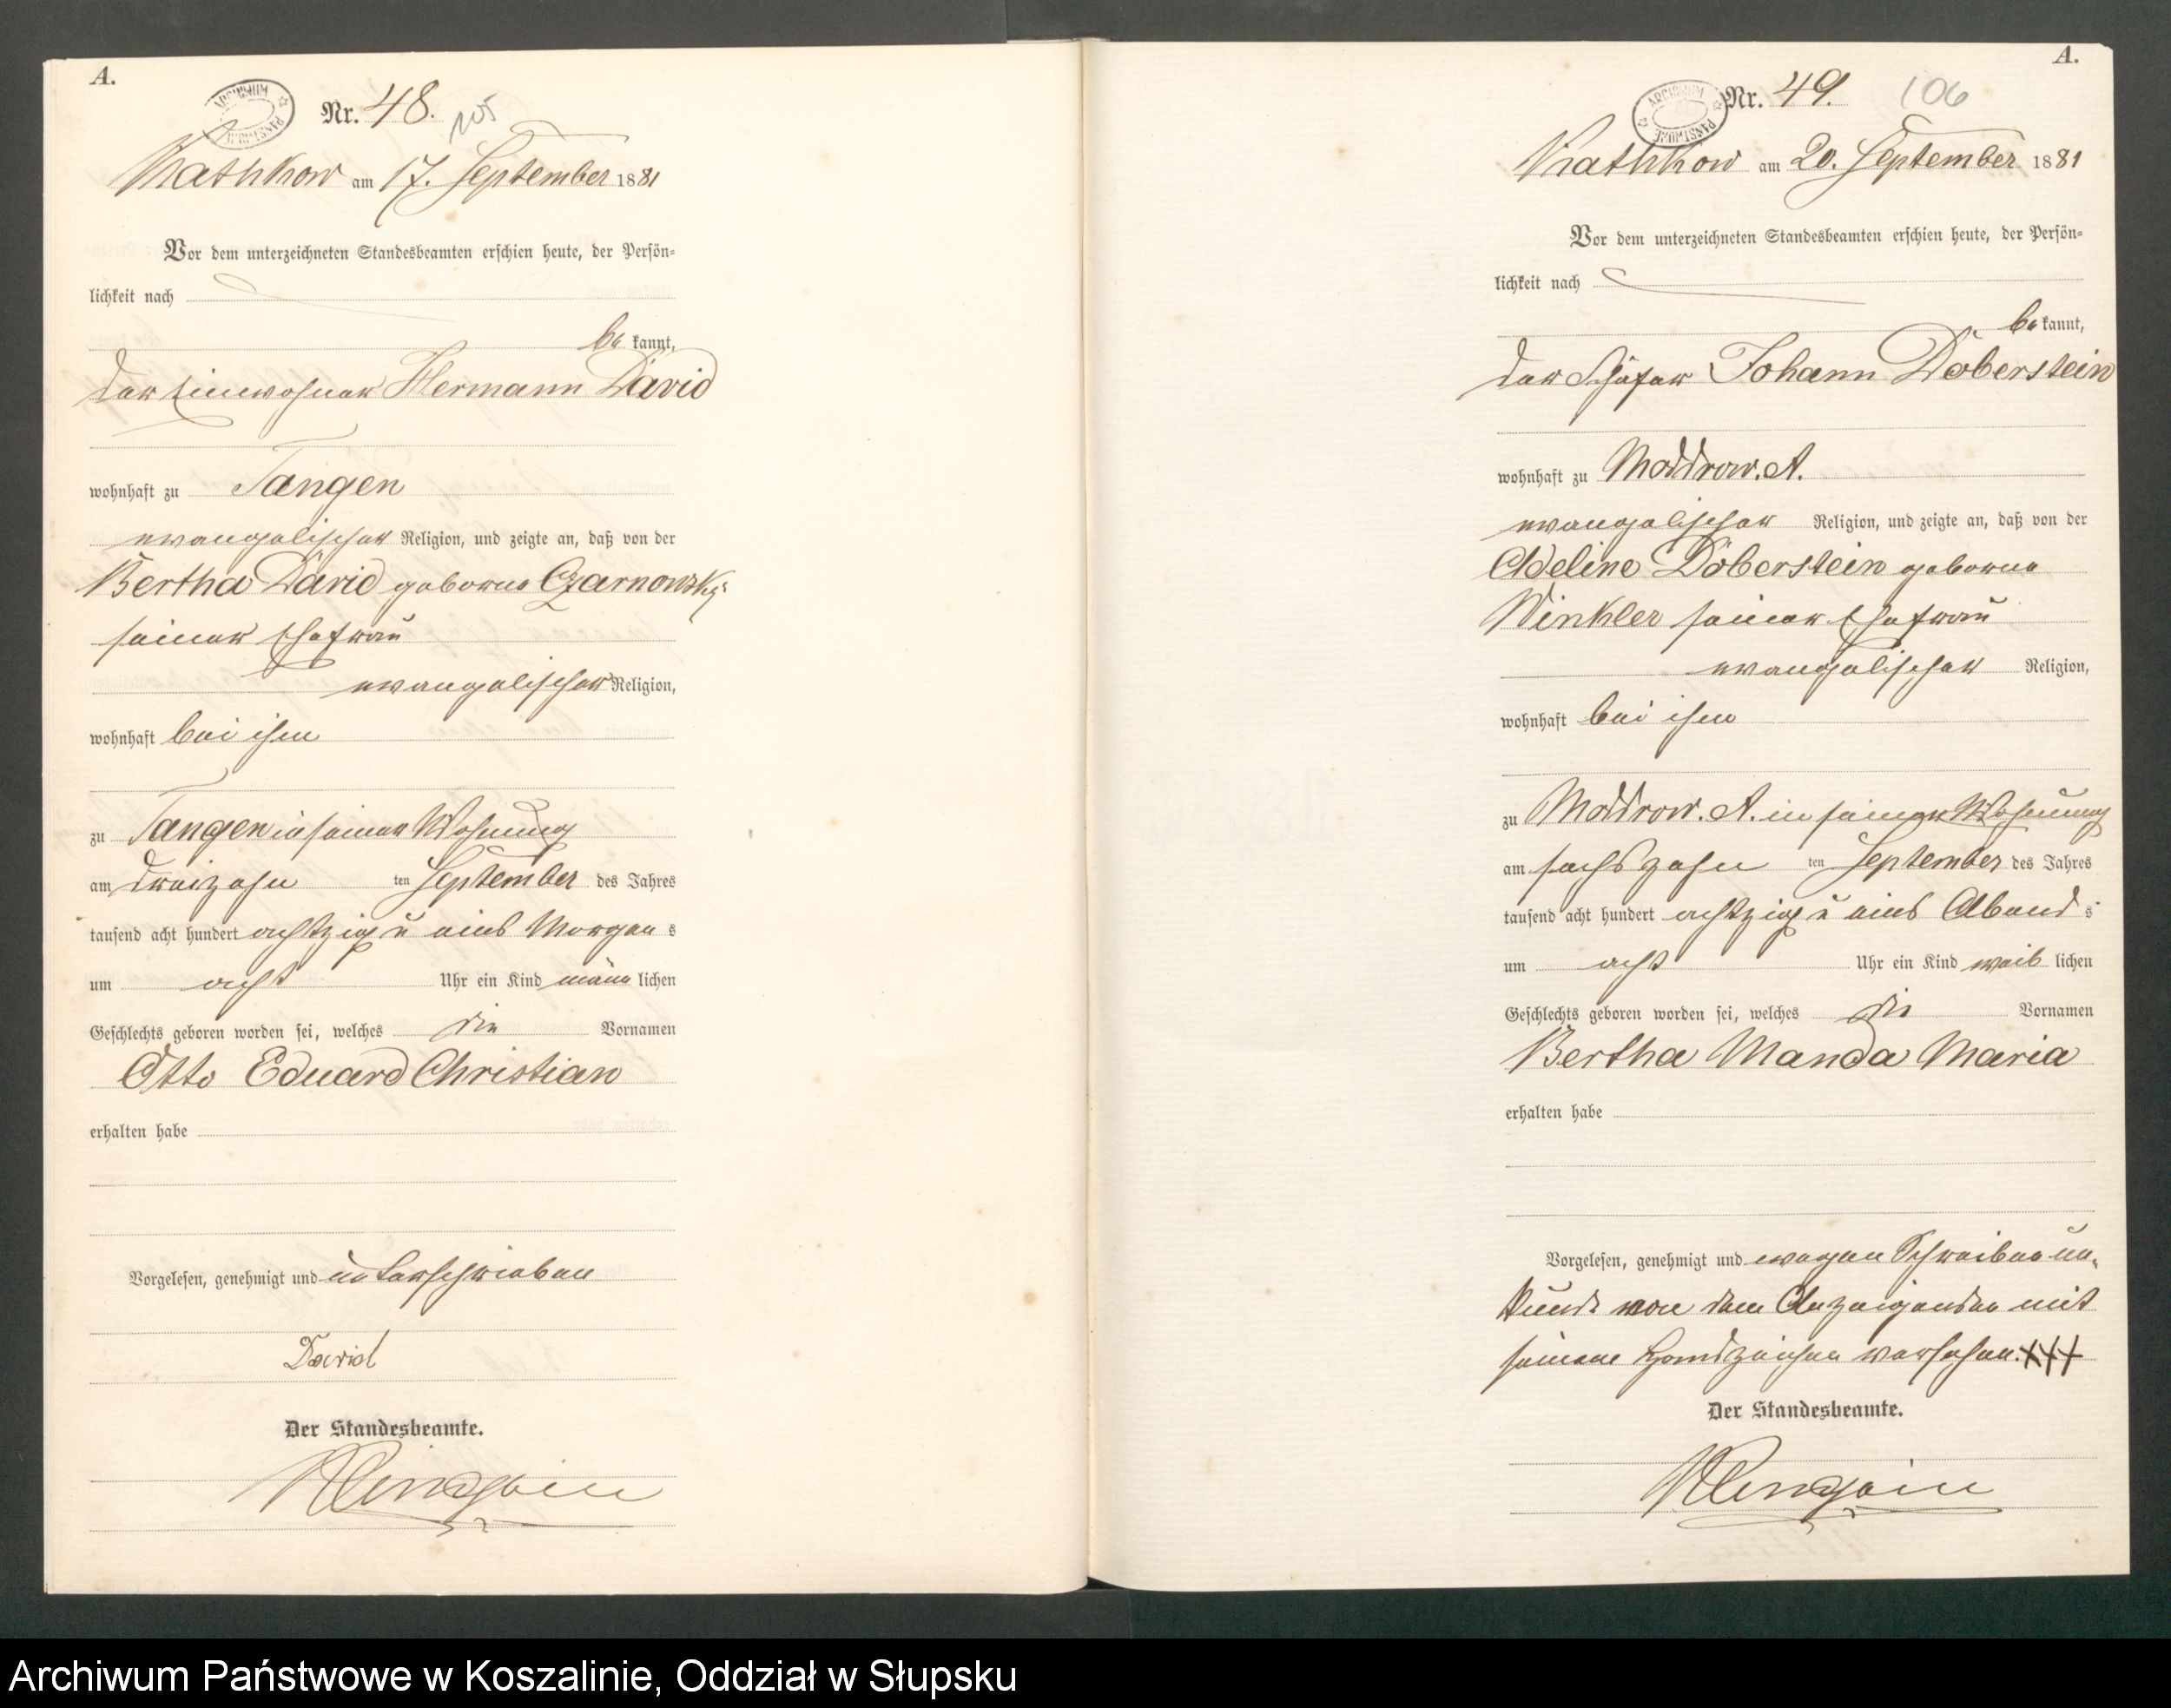 A.
ARCHIWUM PAŃSTWOWE
Nr. 48.
105
am 17. September 1881
Vor dem unterzeichneten Standesbeamten erschien heute, der Persön-
lichkeit nach
be kannt,
der Einwohner Hermann David
wohnhaft zu Tangen
evangelischer Religion, und zeigte an, daß von der
Bertha David geborne Czarnowsky
seiner Ehefrau
evangelischer Religion,
wohnhaft bei ihm
zu Tangen in seiner Wohnung
am dreizehn ten September des Jahres
tausend acht hundert achtzig u eins Morgen s
um acht Uhr ein Kind männ lichen
Geschlechts geboren worden sei, welches die Vornamen
Otto Eduard Christian
erhalten habe
Vorgelesen, genehmigt und unterschrieben
David
Der Standesbeamte.
A.
ARCHIWUM PAŃSTWOWE
Nr. 49.
106
am 20. September 1881
Vor dem unterzeichneten Standesbeamten erschien heute, der Persön-
lichkeit nach
be kannt,
der Schäfer Johann Döberstein
wohnhaft zu Moddrow. A.
evangelischer Religion, und zeigte an, daß von der
Adeline Döberstein geborne
Winkler seiner Ehefrau
evangelischer Religion,
wohnhaft bei ihm
zu Moddrow. A. in seiner Wohnung
am sechszehn ten September des Jahres
tausend acht hundert achtzig u eins Abend s
um acht Uhr ein Kind weib lichen
Geschlechts geboren worden sei, welches die Vornamen
Bertha Manda Maria
erhalten habe
Vorgelesen, genehmigt und wegen Schreibens un-
kunde von dem Anzeigenden mit
seinem Handzeichen versehen. +++
Der Standesbeamte.
Archiwum Państwowe w Koszalinie, Oddział w Słupsku